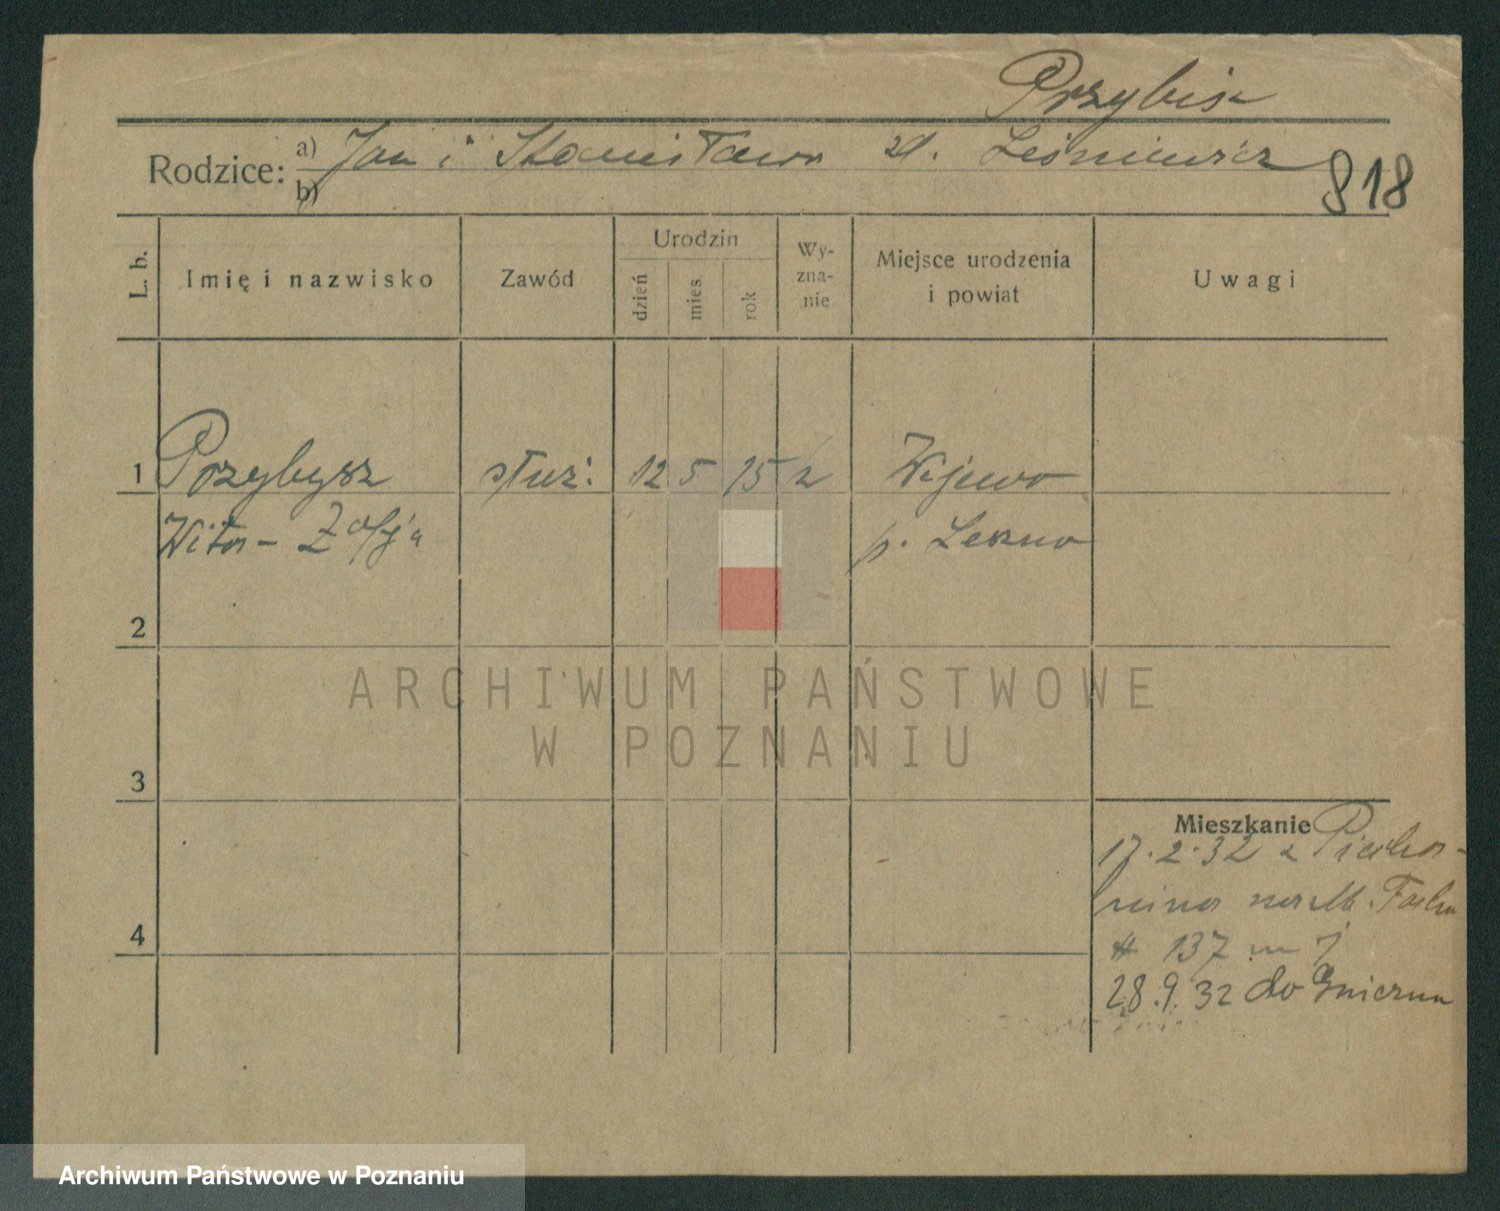 Przybysz
Rodzice: a) Jan i Stanisława zd. Leśniewicz
b)
818
L. b.
Imię i nazwisko
Zawód
Urodzin
dzień
mies.
rok
Wy-
zna-
nie
Miejsce urodzenia
i powiat
Uwagi
1 Przybysz służ. 12 5 15 k Wijewo
Zofja p. Leszno
2
3
4
ARCHIWUM PAŃSTWOWE
W POZNANIU
Mieszkanie
17.2.32 z
137 m
28.9.32 do Gniezna
Archiwum Państwowe w Poznaniu